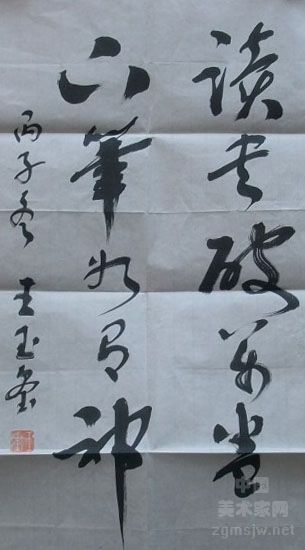 讀書破萬卷
下筆如有神
丙子冬 王玉
中国
美术家网
zgmsjw.net